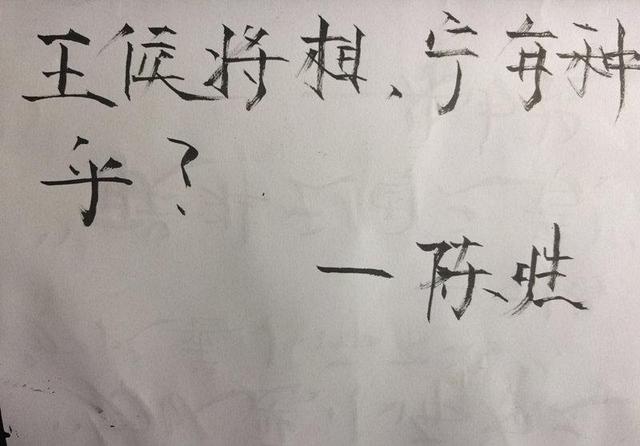 王候将相、宁有种
乎？
—陈胜